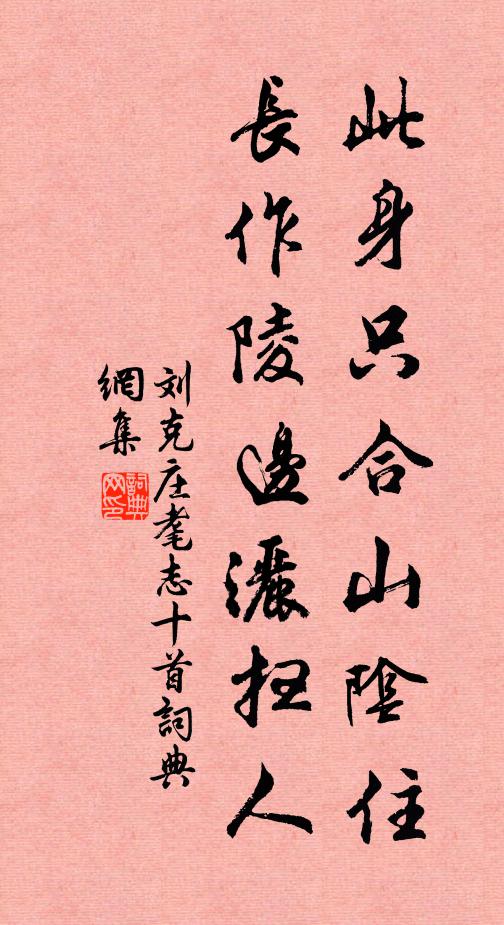 此身只合山陰住
長作陵邊灑扫人
刘克庄耄志十首詞典
網集
詞典
网印